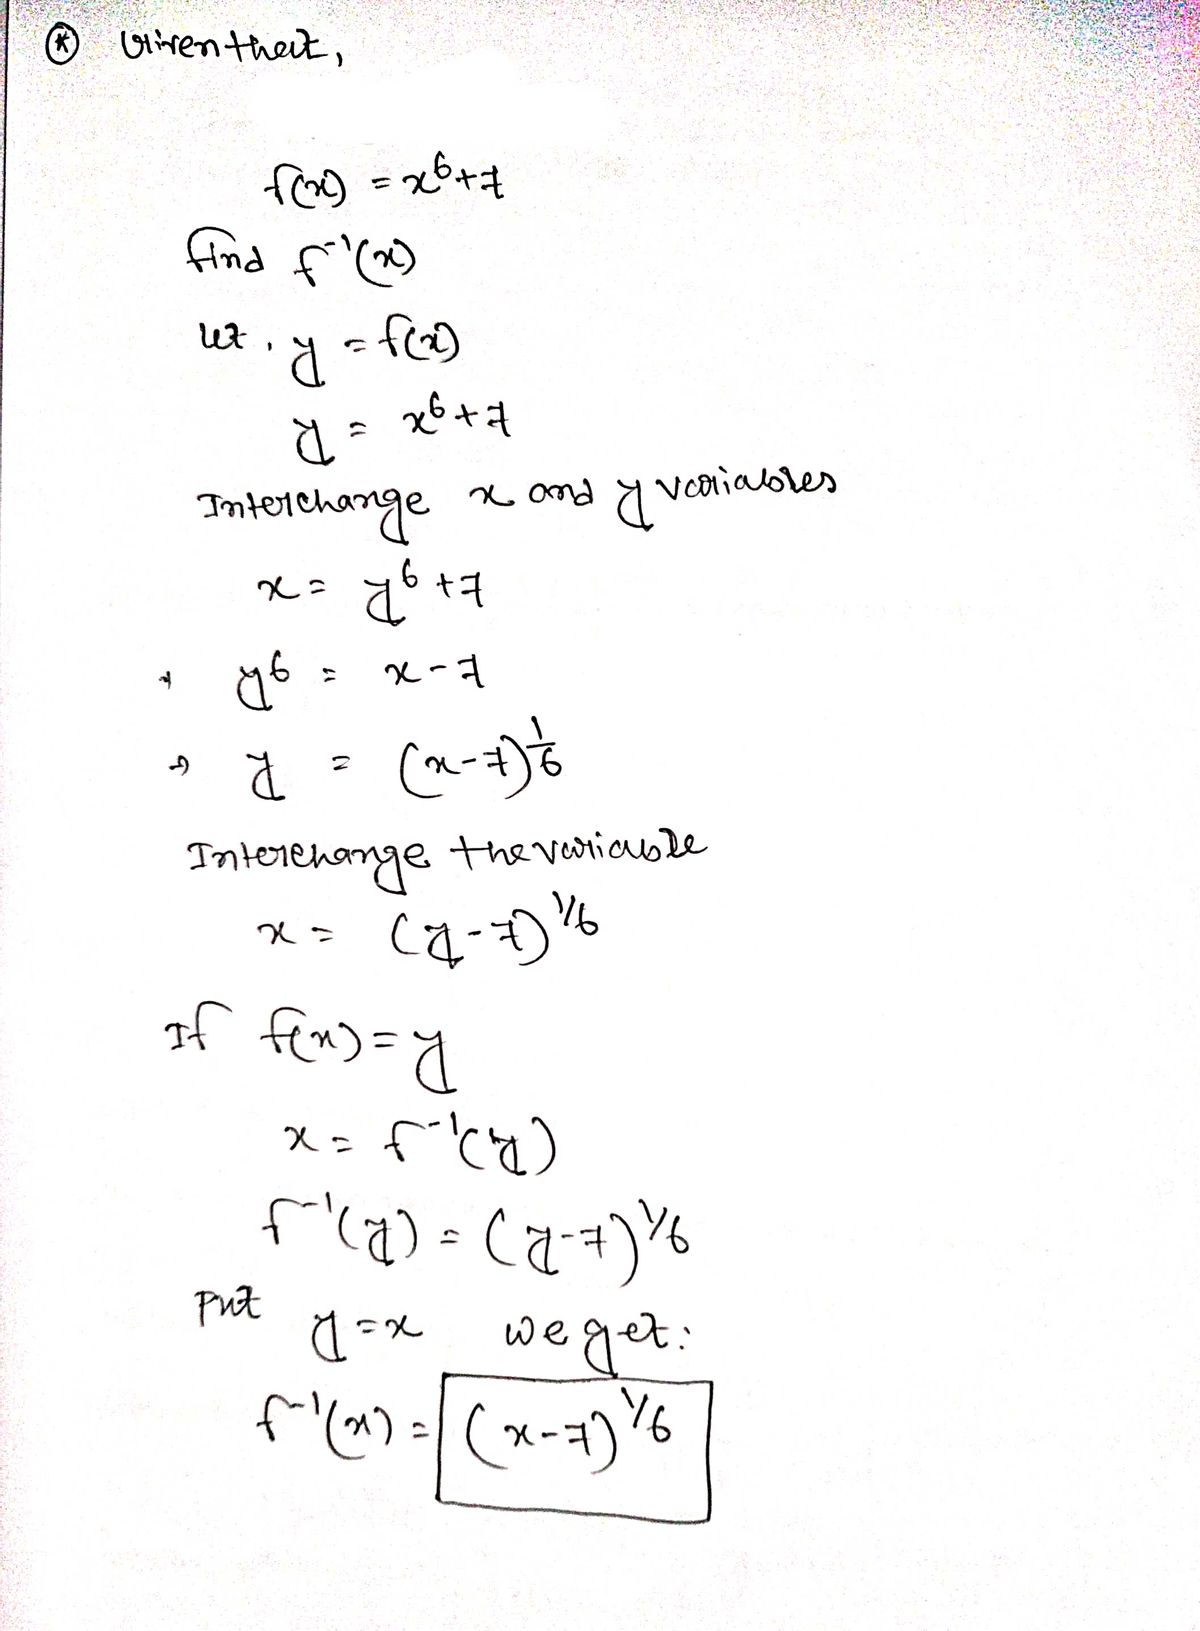 * Given that,
f(x) = x⁶+7
find f⁻¹(x)
let, y = f(x)
y = x⁶+7
Interchange x and y variables
x = y⁶+7
⇒ y⁶ = x-7
⇒ y = (x-7)^1/6
Interchange the variable
x = (y-7)^1/6
If f(x) = y
x = f⁻¹(y)
f⁻¹(y) = (y-7)^1/6
Put y = x we get:
f⁻¹(x) = (x-7)^1/6